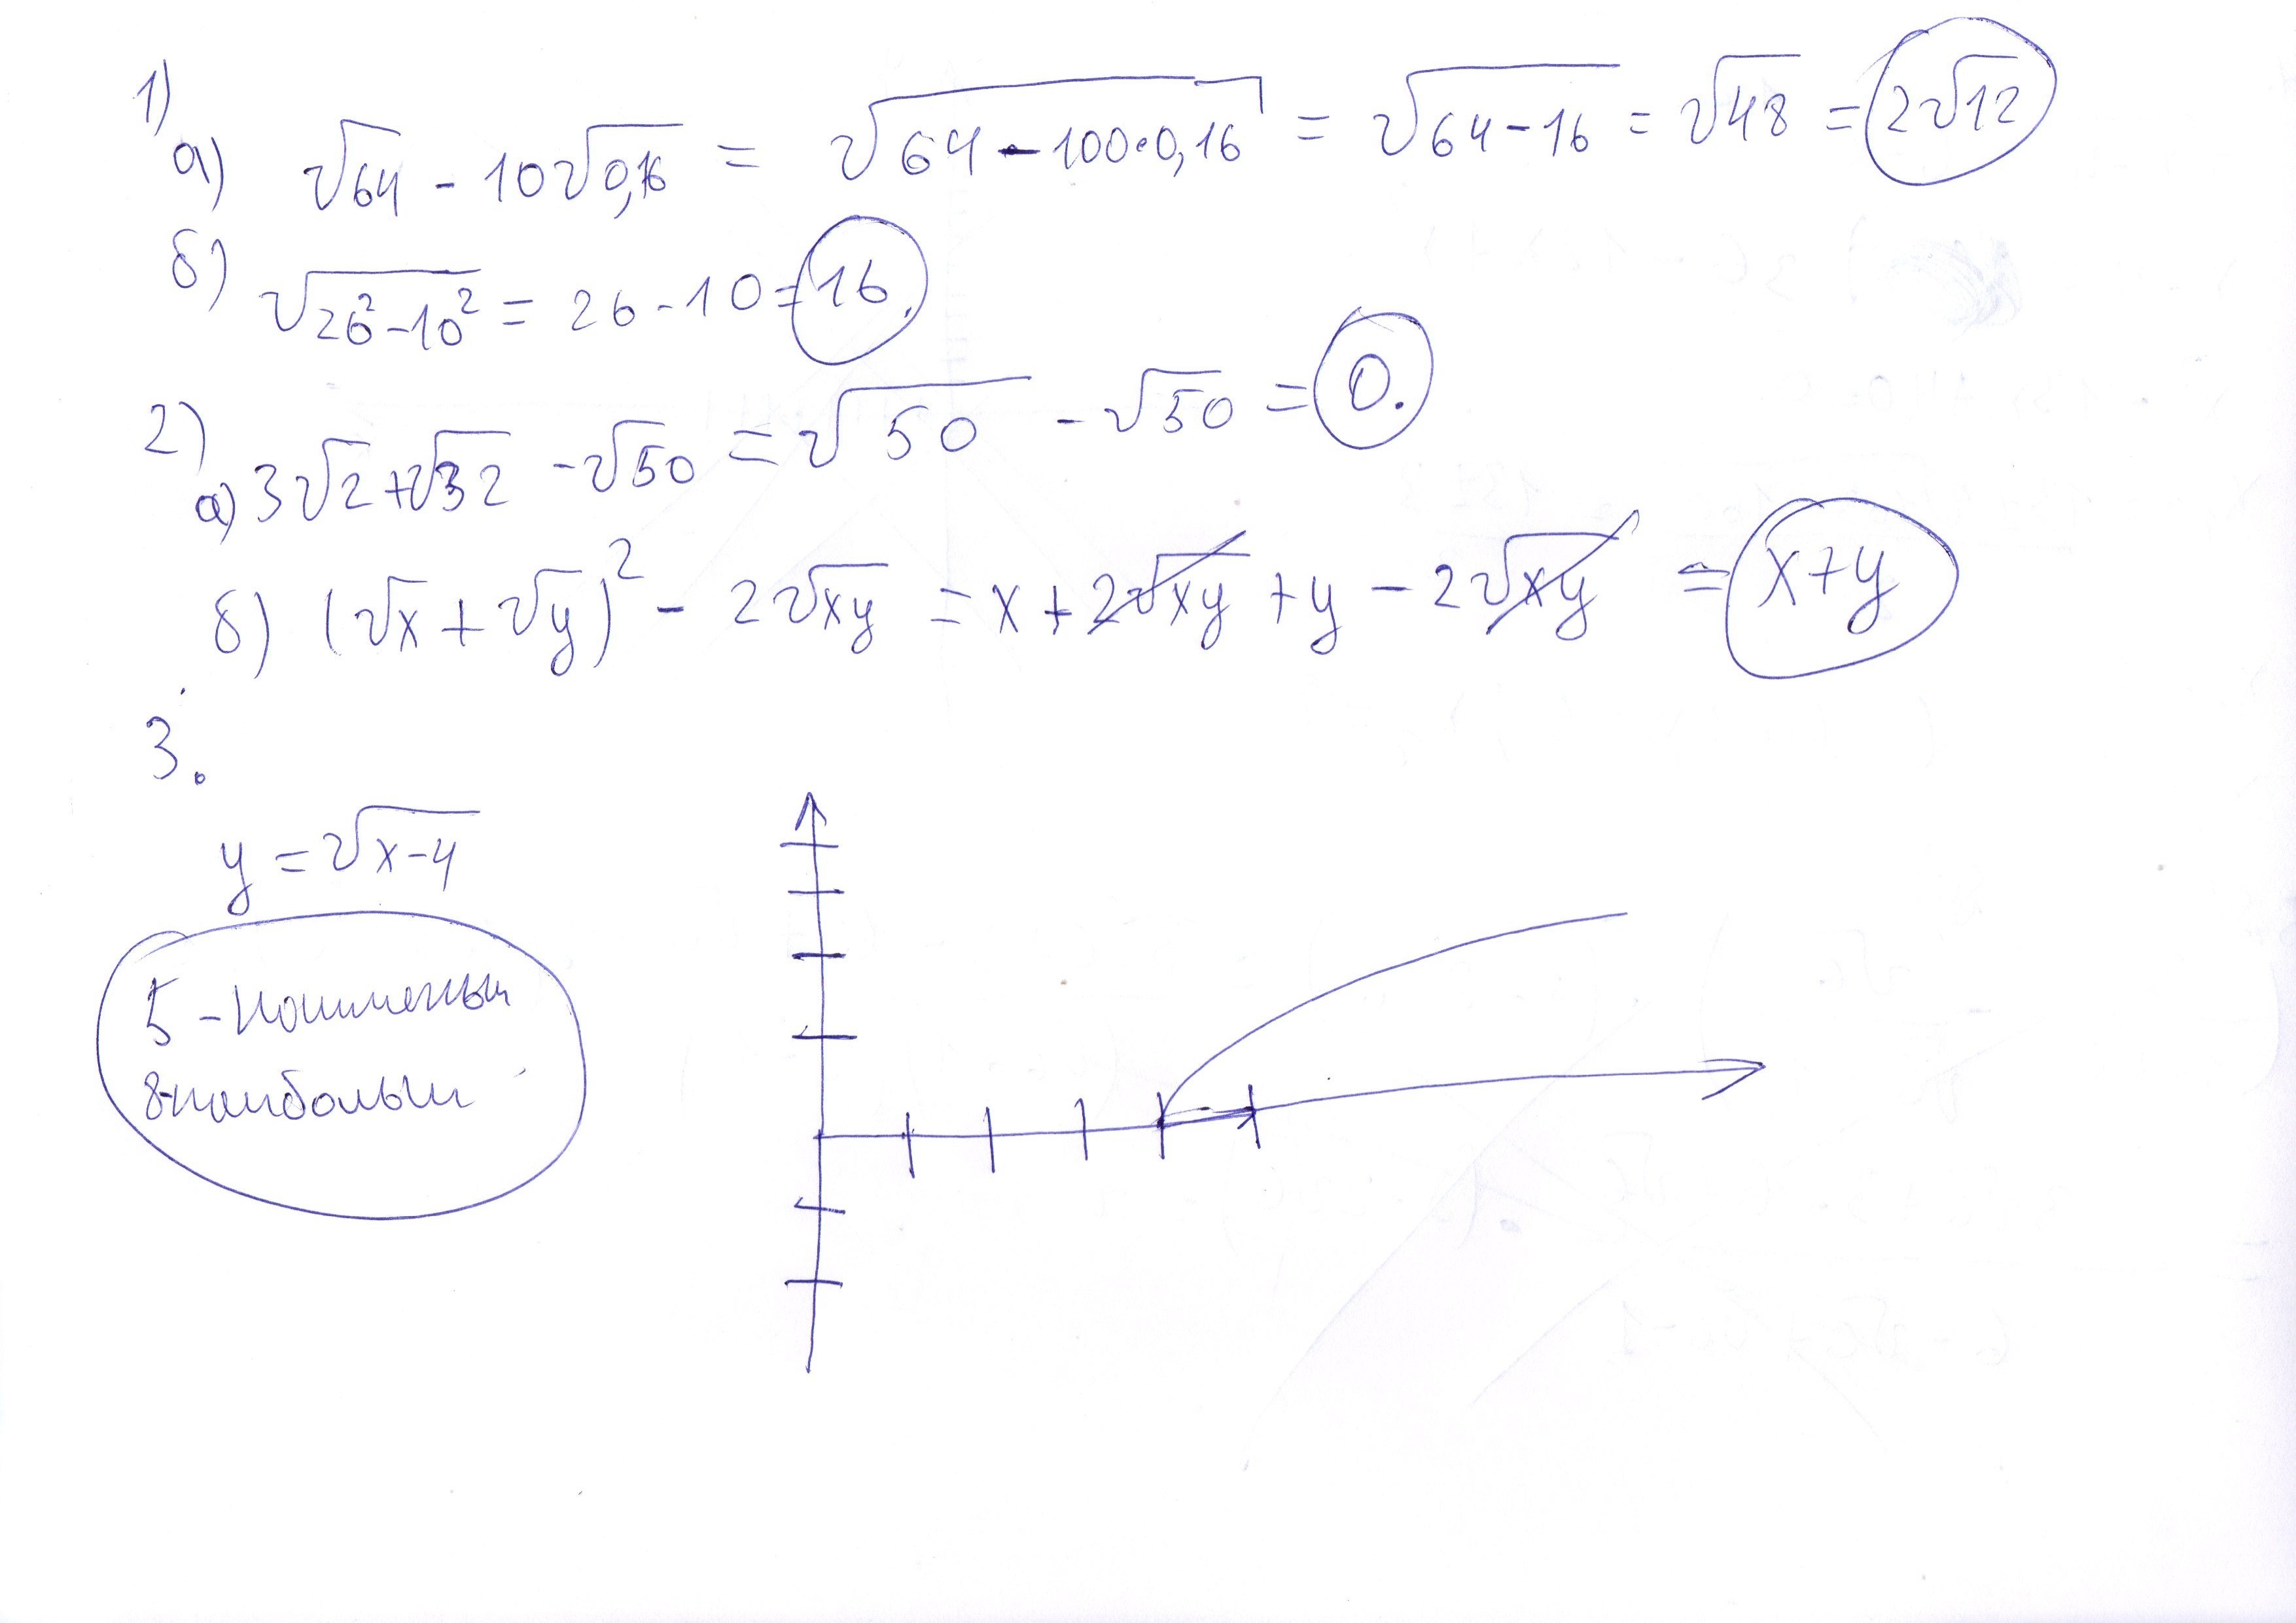 1)
а) √64 - 10√0,16 = √64 - 100·0,16 = √64-16 = √48 = 2√12
б) √26²-10² = 26-10=16.
2)
а) 3√2+√32 -√50 = √50 - √50 = 0.
б) (√x + √y)² - 2√xy = x + 2√xy + y - 2√xy = x+y
3.
y = √x-4
5 -
8-наибольш